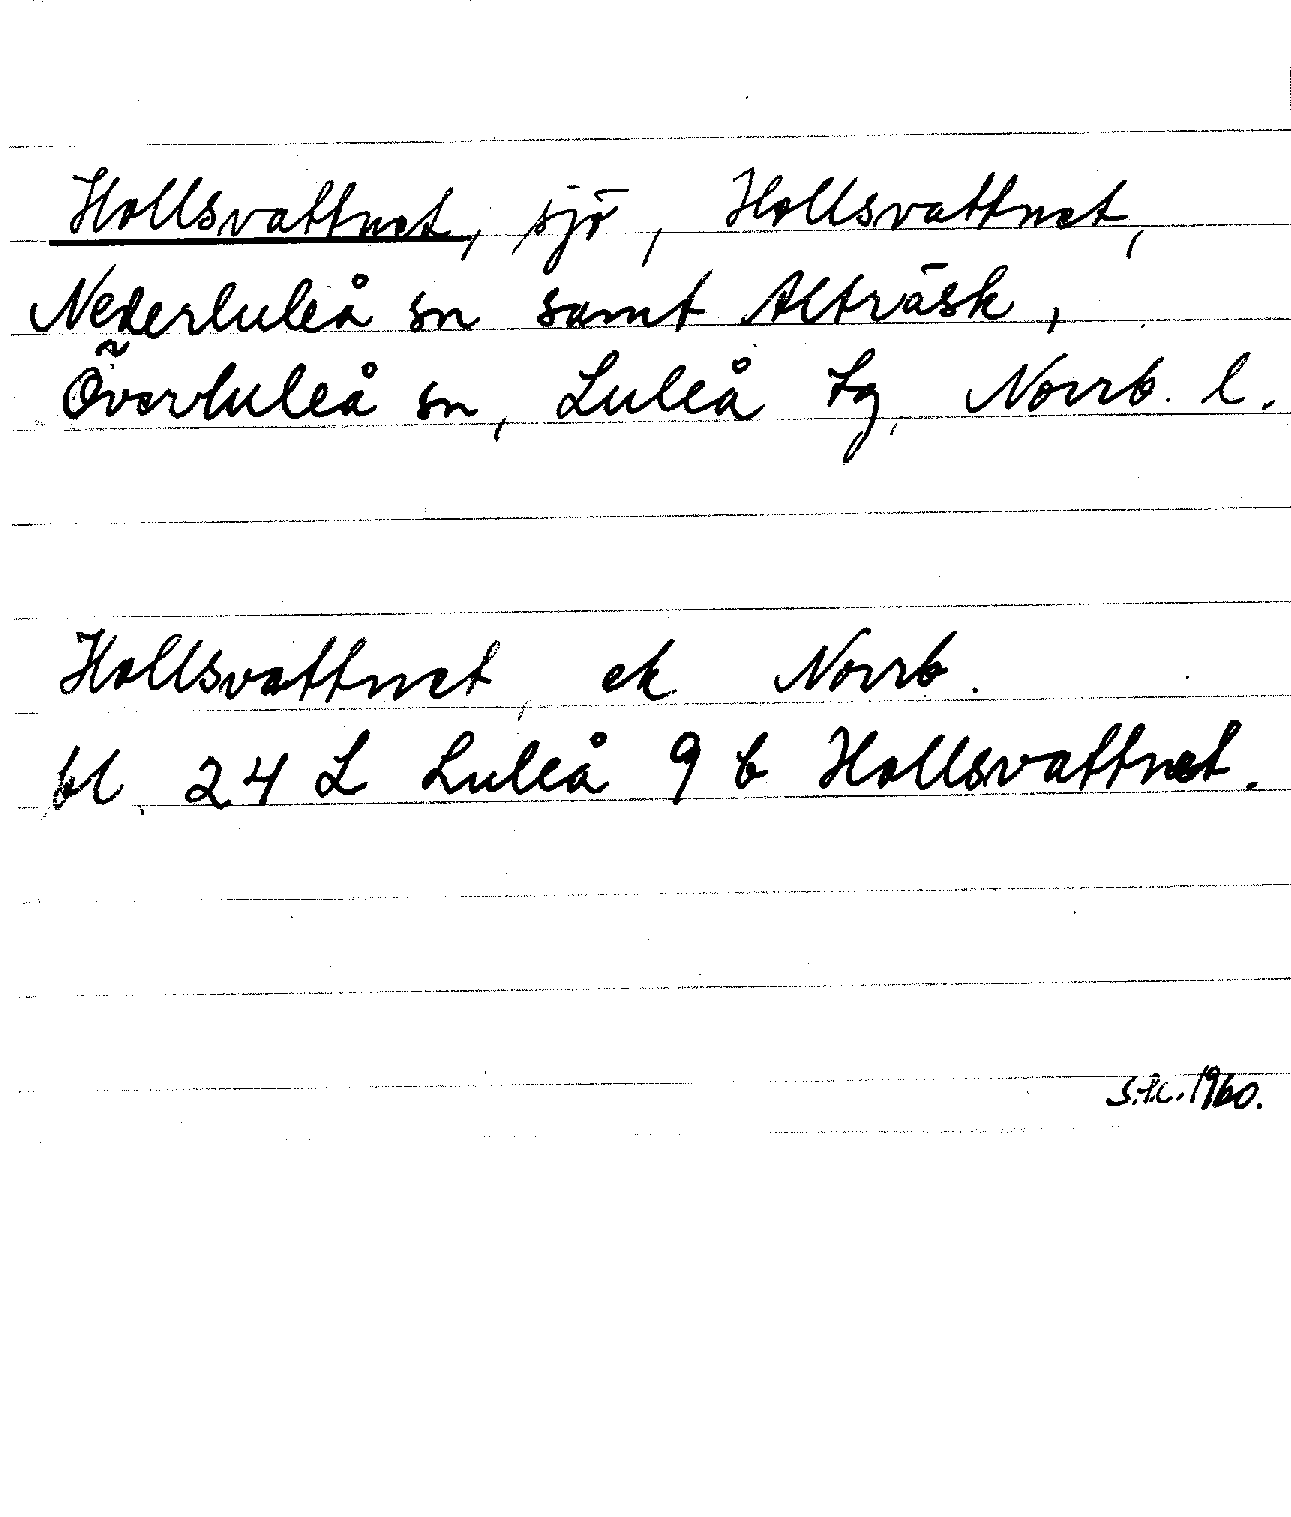 Hollsvattnet, sjö, Hollsvattnet,
Nederluleå sn samt Alträsk,
Överluleå sn, Luleå tg, Norrb. l.
Hollsvattnet, ek Norrb.
bl. 24 L Luleå 9 b Hollsvattnet.
1960.